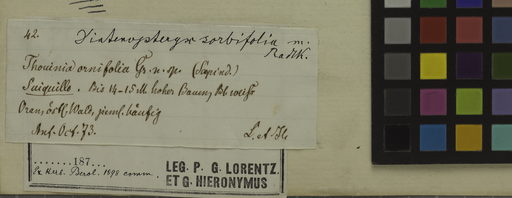 42. Diatenopteryx sorbifolia m.
Radlk.
Thouinia ornifolia Gr. n. sp. (Sapind.)
Suiquillo. Bis 14-15 M hoher Baum, Bl. weiss
Oran, östl. Wald, ziml. häufig
Anf. Oct. 73. L. et H.
.......187...
Ex Herb. Berol. 1898 comm.
LEG. P. G. LORENTZ.
ET G. HIERONYMUS